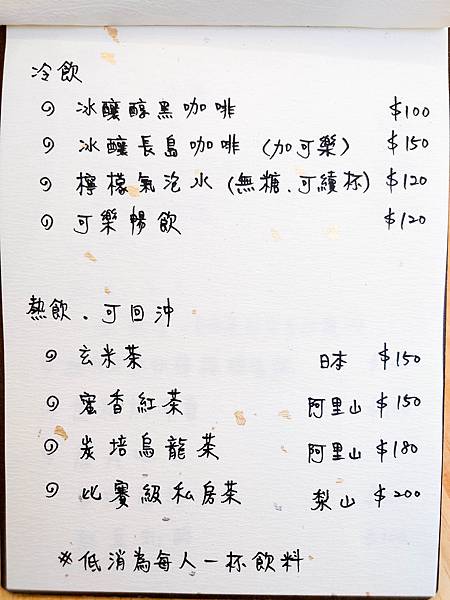 冷飲
冰釀醇黑咖啡 $100
冰釀長島咖啡 (加可樂) $150
檸檬氣泡水 (無糖、可續杯) $120
可樂暢飲 $120
熱飲、可回沖
玄米茶 日本 $150
蜜香紅茶 阿里山 $150
炭培烏龍茶 阿里山 $180
比賽級私房茶 梨山 $200
※低消為每人一杯飲料